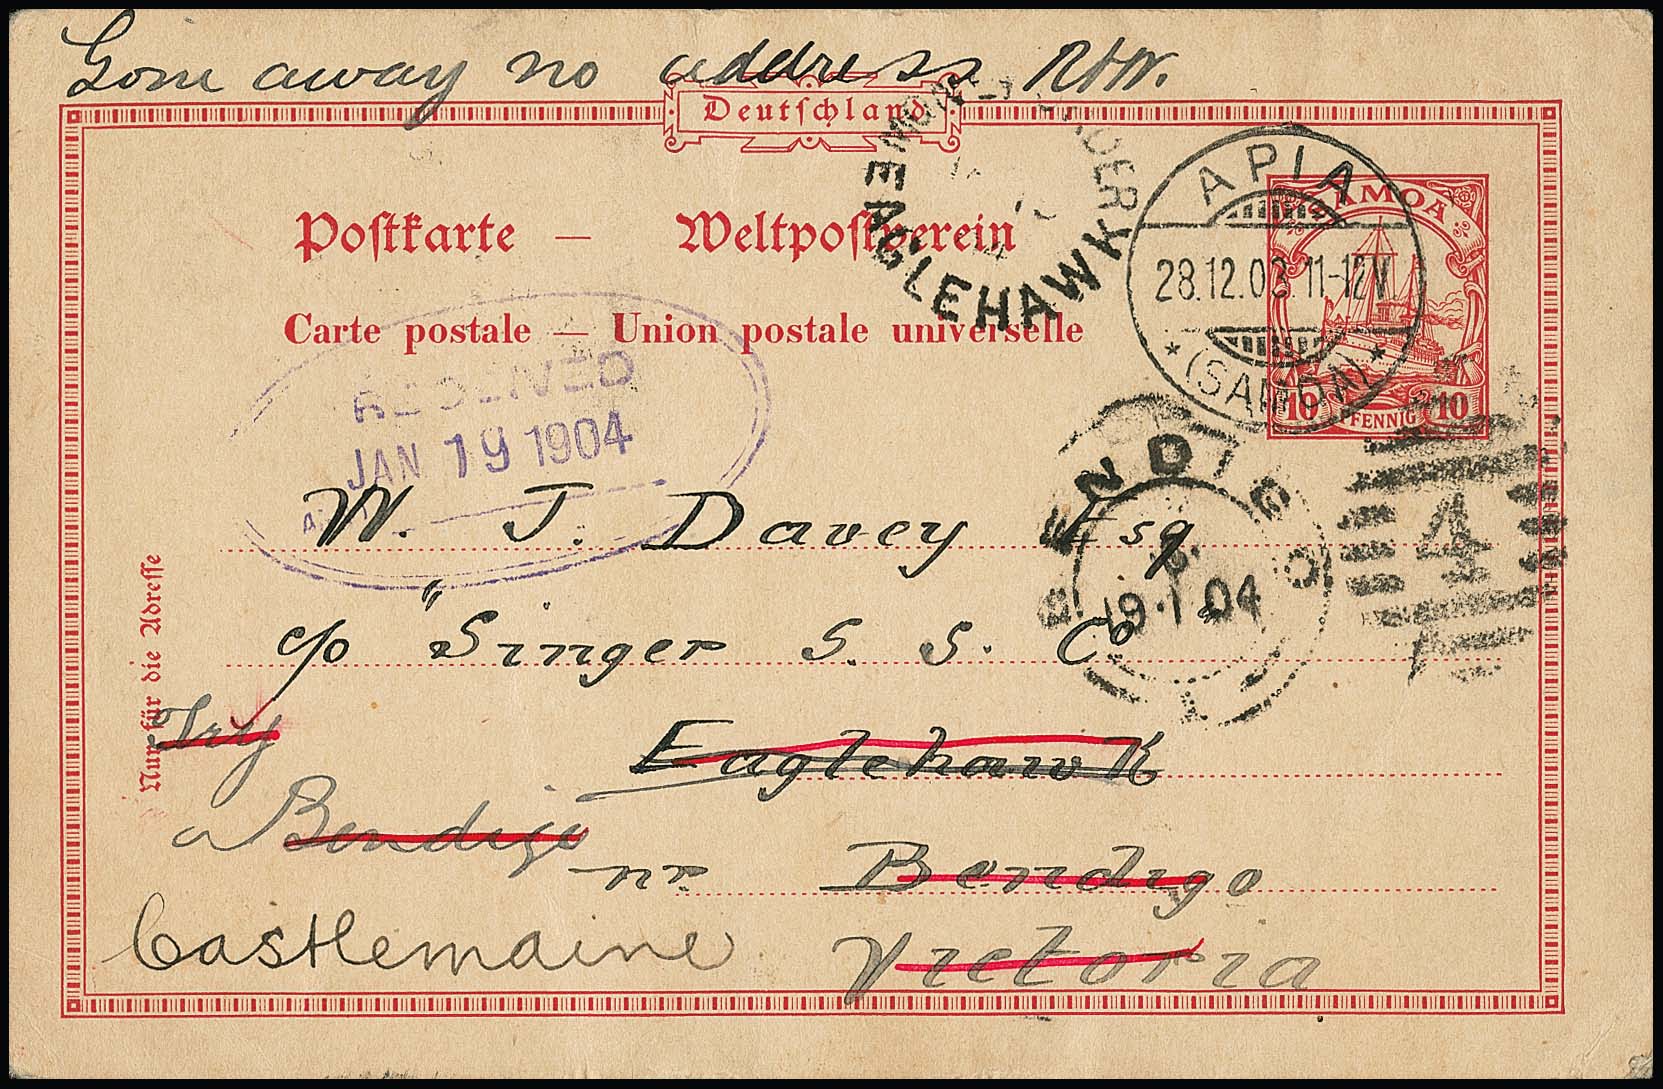 Gone away no address
Deutschland
Postkarte — Weltpostverein
Carte postale — Union postale universelle
EAGLEHAWK
APIA
28.12.03. 11-12V
* (SAMOA) *
SAMOA
10 PFENNIG 10
RECEIVED
JAN 19 1904
BENDIGO
19·1 04
1
4
W. J. Davey Esq
c/o "Singer S. S. Co"
Try
Eaglehawk
Bendigo
nr Bendigo
Castlemaine
Victoria
Nur für die Adresse